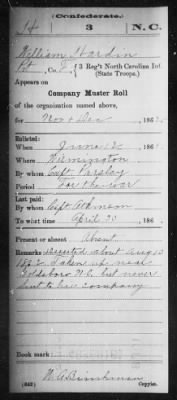 Confederate.
H 3 N.C.
William Hardin
Pt, Co. , 3 Reg't North Carolina Inf.
(State Troops.)
Appears on
Company Muster Roll
of the organization named above,
for Nov & Dec , 186
Enlisted:
When June 12 , 186
Where Wilmington
By whom Capt Parsley
Period For the war
Last paid:
By whom Capt
To what time April 30 , 186
Present or absent Absent
Remarks: about Aug 10
Taken up near
Goldsboro N.C. but never
sent to his company
Book mark:
(642) Copyist.